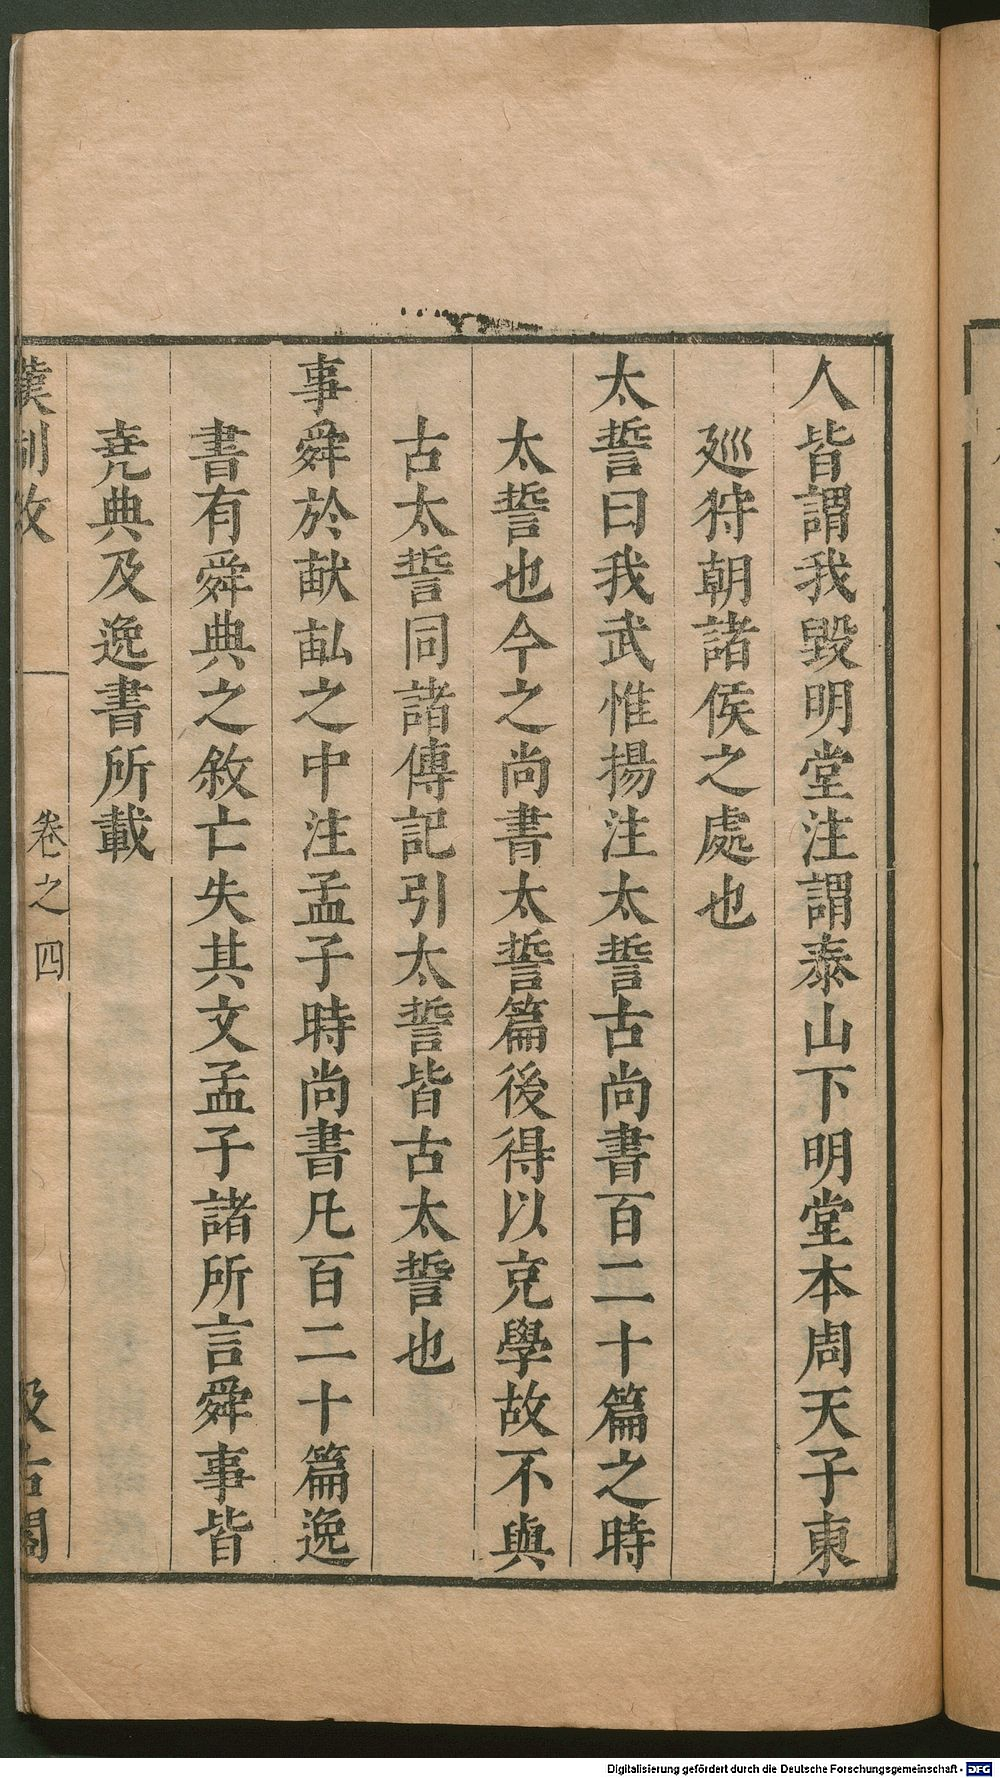 人皆謂我毀明堂注謂泰山下明堂本周天子東
廵狩朝諸侯之處也
太誓曰我武惟揚注太誓古尚書百二十篇之時
太誓也今之尚書太誓篇後得以充學故不與
古太誓同諸傳記引太誓皆古太誓也
事舜於畎畝之中注孟子時尚書凡百二十篇逸
書有舜典之敘亡失其文孟子諸所言舜事皆
堯典及逸書所載
漢制攷 卷之四 汲古閣
Digitalisierung gefördert durch die Deutsche Forschungsgemeinschaft - DFG